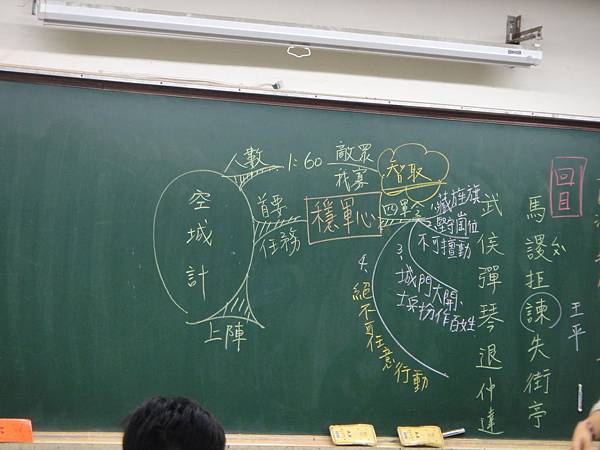 回目
馬謖拒諫失街亭
ㄙㄨˋ
王平
武侯彈琴退仲達
空城計
人數
1:60
敵眾
我寡
智取
首要
任務
穩軍心
四軍令
1.藏旌旗
2.堅守崗位
不可擅動
3.城門大開、
士兵扮作百姓
4.絕不可任意行動
上陣